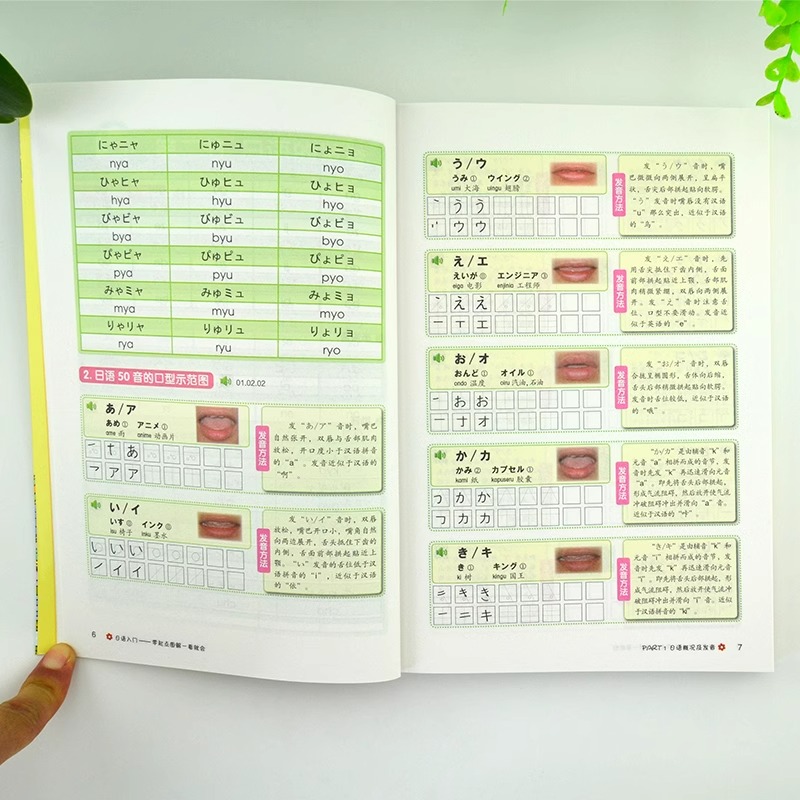 にゃニャ にゅニュ にょニョ
nya nyu nyo
ひゃヒャ ひゅヒュ ひょヒョ
hya hyu hyo
びゃビャ びゅビュ びょビョ
bya byu byo
ぴゃピャ ぴゅピュ ぴょピョ
pya pyu pyo
みゃミャ みゅミュ みょミョ
mya myu myo
りゃリャ りゅリュ りょリョ
rya ryu ryo
2. 日语 50 音的口型示范图 01.02.02
あ / ア
あめ① アニメ①
ame 雨 anime 动画片
一 十 あ
ア ア
发音方法
发“あ/ア”音时，嘴巴
自然张开，双唇与舌部肌肉
放松，开口度小于汉语拼音
的“a”。发音近似于汉语的
“啊”。
い / イ
いす⓪ インク⓪
isu 椅子 inku 墨水
い い
ノ イ イ
发音方法
发“い/イ”音时，双唇
放松，嘴巴开口小，嘴角自然
向两边展开，舌头抵住下齿的
内侧，舌面前部拱起贴近上
颚。“い”发音的舌位低于汉
语拼音的“i”，近似于汉语
的“依”。
6 日语入门——零起点图解一看就会
う / ウ
うみ① ウイング②
umi 大海 uingu 翅膀
う う
ウ ウ
发音方法
发“う/ウ”音时，嘴
巴微微向两侧展开，呈扁平
状，舌尖后部拱起贴向软腭。
“う”发音时嘴唇没有汉语
“u”那么突出，近似于汉语
的“乌”。
え / エ
えいが⓪ エンジニア③
eiga 电影 enjinia 工程师
え え
一 丅 エ
发音方法
发“え/エ”音时，先
用舌尖抵住下齿内侧，舌面
前部拱起贴近上颚，舌部肌
肉稍微紧绷，双唇向两侧展
开。发“え”音时注意舌
位、口型不要滑动。发音近
似于英语的“e”。
お / オ
おんど① オイル①
ondo 温度 oiru 汽油,石油
お お
一 ナ オ
发音方法
发“お/オ”音时，双唇
合拢呈椭圆形，舌体向后缩，
舌头后部稍微拱起贴向软腭。
发音时舌位较低，近似于汉语
的“哦”。
か / カ
かみ② カプセル①
kami 纸 kapuseru 胶囊
つ か か
フ カ カ
发音方法
“か/カ”是由辅音“k”和
元音“a”相拼而成的音节，发
音时先发“k”再迅速滑向元音
“a”。即先将舌头后部拱起，形
成气流阻碍，然后放开使气流
冲破阻碍冲出并滑向“a”音。
近似于汉语的“咔”。
き / キ
き① キング①
ki 树 kingu 国王
き き
一 二 キ
发音方法
“き/キ”是由辅音“k”和
元音“i”相拼而成的音节，发音
时先发“k”再迅速滑向元音
“i”。即先将舌头后部拱起，形
成气流阻碍，然后放开使气流冲
破阻碍冲出并滑向“i”音。近
似于汉语拼音的“ki”。
PART 1 日语概况及发音 7